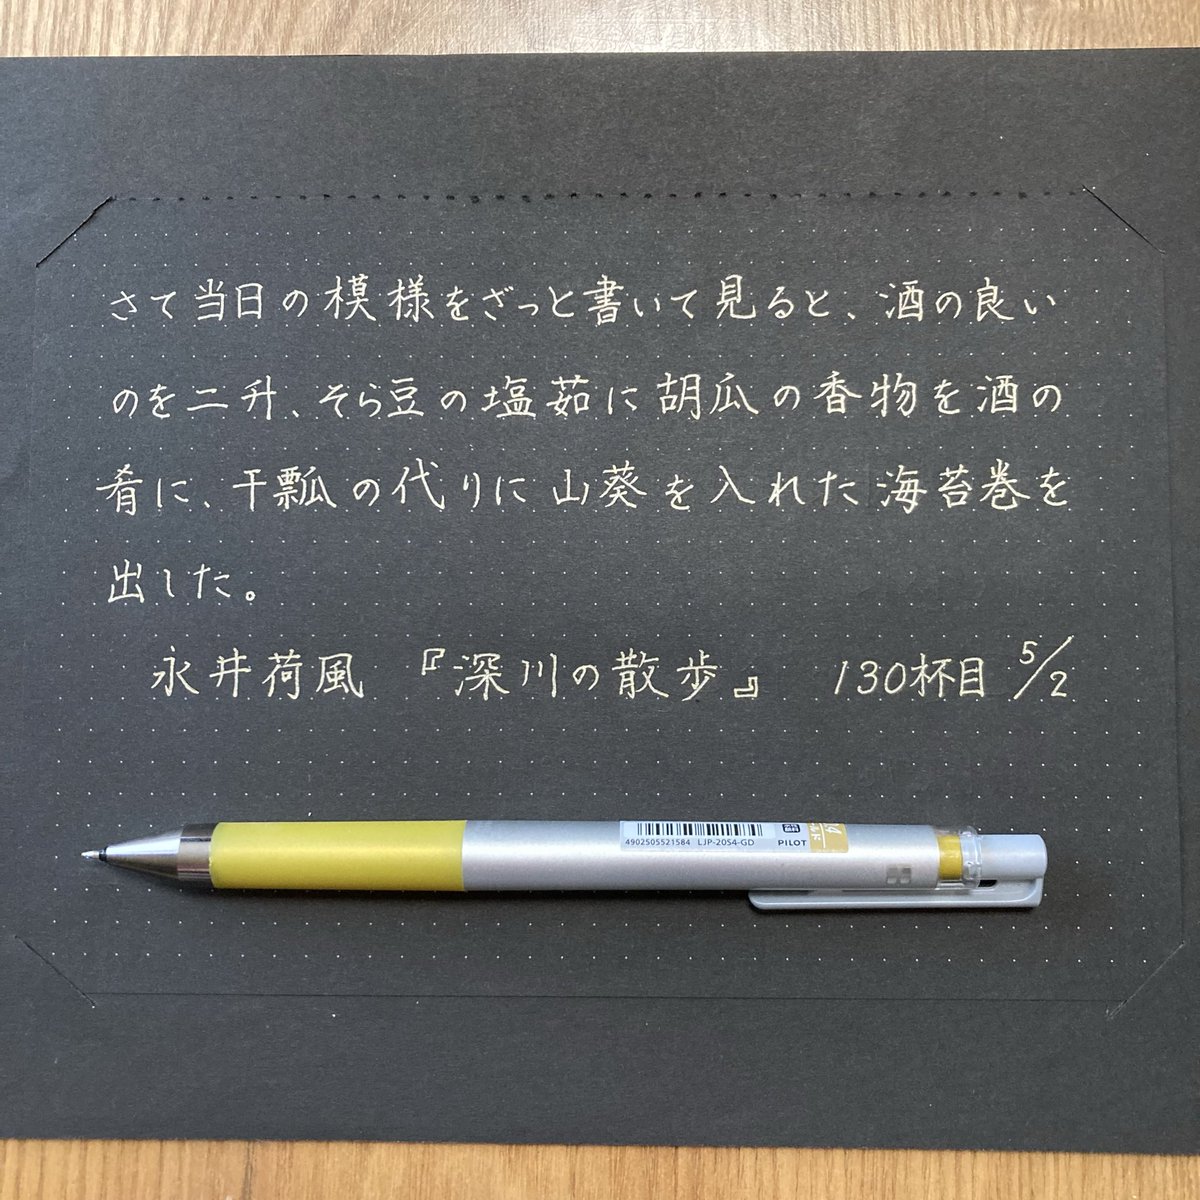 さて当日の模様をざっと書いて見ると、酒の良い
のを二升、そら豆の塩茹に胡瓜の香物を酒の
肴に、干瓢の代りに山葵を入れた海苔巻を
出した。
永井荷風 『深川の散歩』 130杯目 5/2
4902505521584 LJP-20S4-GD PILOT